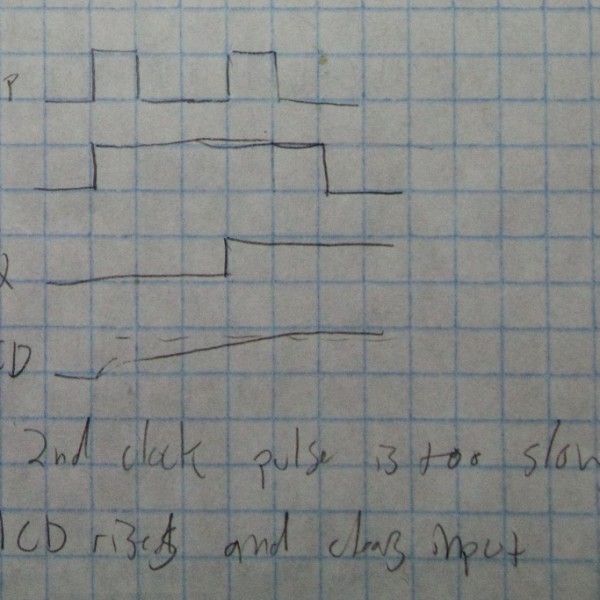 P
Q
CD
2nd clock pulse is too slow
CD rises and clears input